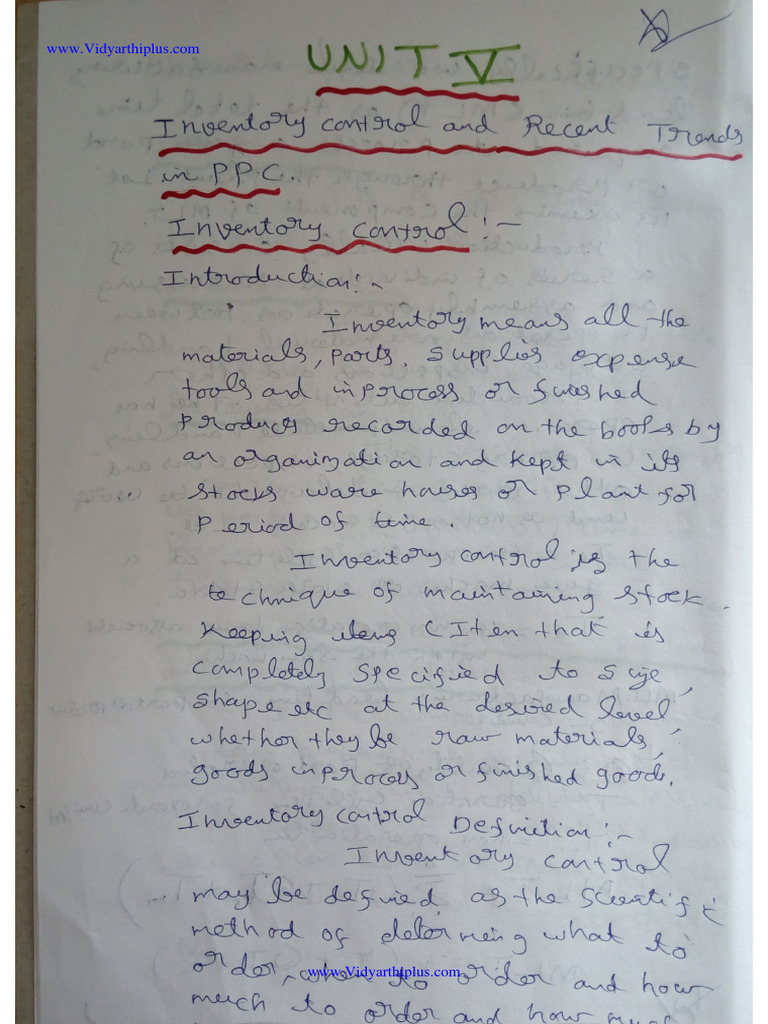 www.Vidyarthiplus.com
UNIT V
Inventory control and Recent Trends
in PPC.
Inventory control :-
Introduction:-
Inventory means all the
materials, parts, supplies expense
tools and inprocess or finished
products recorded on the books by
an organization and kept in its
stocks ware houses or plant for
period of time.
Inventory control is the
technique of maintaining stock
keeping items (Item that is
completely specified to size,
shape etc at the desired level
whether they be raw materials,
goods inprocess or finished goods.
Inventory control Definition:-
Inventory control
may be defined as the scientific
method of determing what to
order, when to order and how
www.Vidyarthiplus.com
much to order and how much